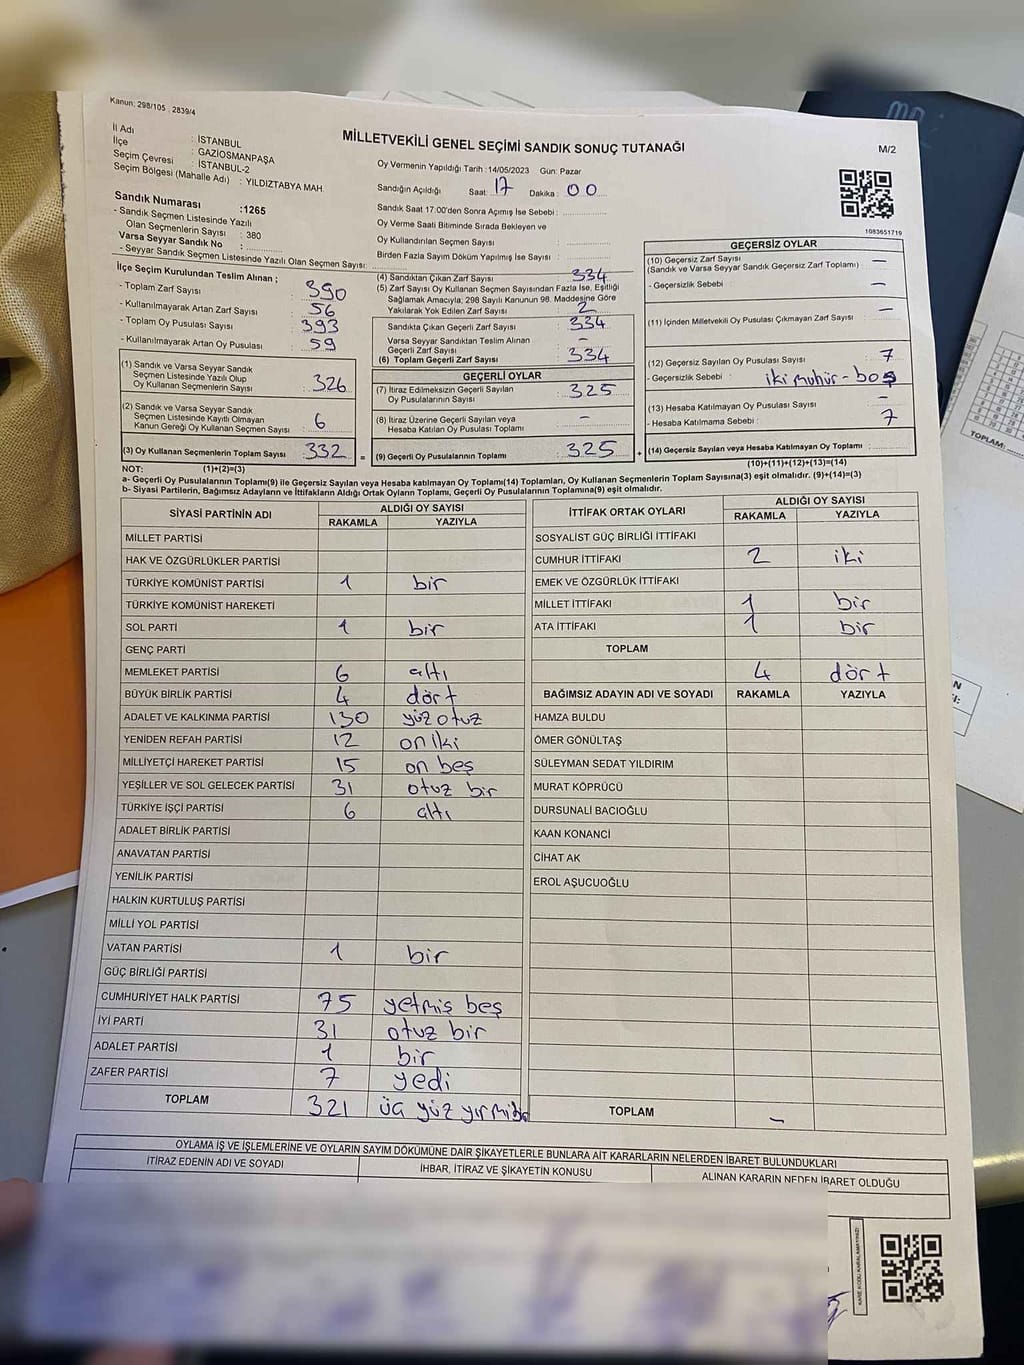 Kanun: 298/105 : 2839/4
MİLLETVEKİLİ GENEL SEÇİMİ SANDIK SONUÇ TUTANAĞI
M/2
İl Adı : İSTANBUL
İlçe : GAZİOSMANPAŞA
Seçim Çevresi : İSTANBUL-2
Seçim Bölgesi (Mahalle Adı) : YILDIZTABYA MAH.
Sandık Numarası :1265
- Sandık Seçmen Listesinde Yazılı
Olan Seçmenlerin Sayısı : 380
Varsa Seyyar Sandık No :
- Seyyar Sandık Seçmen Listesinde Yazılı Olan Seçmen Sayısı:
Oy Vermenin Yapıldığı Tarih :14/05/2023 Gün: Pazar
Sandığın Açıldığı Saat: 17 Dakika : 00
Sandık Saat 17:00'den Sonra Açılmış İse Sebebi :
Oy Verme Saati Bitiminde Sırada Bekleyen ve
Oy Kullandırılan Seçmen Sayısı :
Birden Fazla Sayım Döküm Yapılmış İse Sayısı :
1083651719
İlçe Seçim Kurulundan Teslim Alınan ;
- Toplam Zarf Sayısı : 390
- Kullanılmayarak Artan Zarf Sayısı : 56
- Toplam Oy Pusulası Sayısı : 393
- Kullanılmayarak Artan Oy Pusulası : 59
(1) Sandık ve Varsa Seyyar Sandık
Seçmen Listesinde Yazılı Olup
Oy Kullanan Seçmenlerin Sayısı : 326
(2) Sandık ve Varsa Seyyar Sandık
Seçmen Listesinde Kayıtlı Olmayan
Kanun Gereği Oy Kullanan Seçmen Sayısı : 6
(3) Oy Kullanan Seçmenlerin Toplam Sayısı : 332 =
(4) Sandıktan Çıkan Zarf Sayısı : 334
(5) Zarf Sayısı Oy Kullanan Seçmen Sayısından Fazla İse, Eşitliği
Sağlamak Amacıyla, 298 Sayılı Kanunun 98. Maddesine Göre
Yakılarak Yok Edilen Zarf Sayısı : 2
Sandıkta Çıkan Geçerli Zarf Sayısı : 334
Varsa Seyyar Sandıktan Teslim Alınan
Geçerli Zarf Sayısı : -
(6) Toplam Geçerli Zarf Sayısı : 334
GEÇERLİ OYLAR
(7) İtiraz Edilmeksizin Geçerli Sayılan
Oy Pusulalarının Sayısı : 325
(8) İtiraz Üzerine Geçerli Sayılan veya
Hesaba Katılan Oy Pusulası Toplamı : -
(9) Geçerli Oy Pusulalarının Toplamı : 325 +
GEÇERSİZ OYLAR
(10) Geçersiz Zarf Sayısı : -
(Sandık ve Varsa Seyyar Sandık Geçersiz Zarf Toplamı)
- Geçersizlik Sebebi : -
(11) İçinden Milletvekili Oy Pusulası Çıkmayan Zarf Sayısı : -
(12) Geçersiz Sayılan Oy Pusulası Sayısı : 7
- Geçersizlik Sebebi : iki mühür - boş
(13) Hesaba Katılmayan Oy Pusulası Sayısı : -
- Hesaba Katılmama Sebebi : 7
(14) Geçersiz Sayılan veya Hesaba Katılmayan Oy Toplamı :
NOT: (1)+(2)=(3)
(10)+(11)+(12)+(13)=(14)
a- Geçerli Oy Pusulalarının Toplamı(9) ile Geçersiz Sayılan veya Hesaba katılmayan Oy Toplamı(14) Toplamları, Oy Kullanan Seçmenlerin Toplam Sayısına(3) eşit olmalıdır. (9)+(14)=(3)
b- Siyasi Partilerin, Bağımsız Adayların ve İttifakların Aldığı Ortak Oyların Toplamı, Geçerli Oy Pusulalarının Toplamına(9) eşit olmalıdır.
SİYASİ PARTİNİN ADI ALDIĞI OY SAYISI
RAKAMLA YAZIYLA
MİLLET PARTİSİ
HAK VE ÖZGÜRLÜKLER PARTİSİ
TÜRKİYE KOMÜNİST PARTİSİ 1 bir
TÜRKİYE KOMÜNİST HAREKETİ
SOL PARTİ 1 bir
GENÇ PARTİ
MEMLEKET PARTİSİ 6 altı
BÜYÜK BİRLİK PARTİSİ 4 dört
ADALET VE KALKINMA PARTİSİ 130 yüz otuz
YENİDEN REFAH PARTİSİ 12 on iki
MİLLİYETÇİ HAREKET PARTİSİ 15 on beş
YEŞİLLER VE SOL GELECEK PARTİSİ 31 otuz bir
TÜRKİYE İŞÇİ PARTİSİ 6 altı
ADALET BİRLİK PARTİSİ
ANAVATAN PARTİSİ
YENİLİK PARTİSİ
HALKIN KURTULUŞ PARTİSİ
MİLLİ YOL PARTİSİ
VATAN PARTİSİ 1 bir
GÜÇ BİRLİĞİ PARTİSİ
CUMHURİYET HALK PARTİSİ 75 yetmiş beş
İYİ PARTİ 31 otuz bir
ADALET PARTİSİ 1 bir
ZAFER PARTİSİ 7 yedi
TOPLAM 321 üç yüz yirmi
İTTİFAK ORTAK OYLARI ALDIĞI OY SAYISI
RAKAMLA YAZIYLA
SOSYALİST GÜÇ BİRLİĞİ İTTİFAKI
CUMHUR İTTİFAKI 2 iki
EMEK VE ÖZGÜRLÜK İTTİFAKI
MİLLET İTTİFAKI 1 bir
ATA İTTİFAKI 1 bir
TOPLAM
4 dört
BAĞIMSIZ ADAYIN ADI VE SOYADI RAKAMLA YAZIYLA
HAMZA BULDU
ÖMER GÖNÜLTAŞ
SÜLEYMAN SEDAT YILDIRIM
MURAT KÖPRÜCÜ
DURSUNALİ BACIOĞLU
KAAN KONANCİ
CİHAT AK
EROL AŞUCUOĞLU
TOPLAM -
OYLAMA İŞ VE İŞLEMLERİNE VE OYLARIN SAYIM DÖKÜMÜNE DAİR ŞİKAYETLERLE BUNLARA AİT KARARLARIN NELERDEN İBARET BULUNDUKLARI
İTİRAZ EDENİN ADI VE SOYADI
İHBAR, İTİRAZ VE ŞİKAYETİN KONUSU
ALINAN KARARIN NEDEN İBARET OLDUĞU
KARE KODU KARALAMAYINIZ!
TOPLAM: